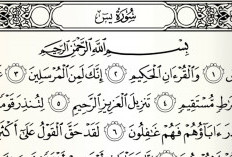 سُورَةُ يسٓ
بِسْمِ ٱللَّهِ ٱلرَّحْمَٰنِ ٱلرَّحِيمِ
١ وَٱلْقُرْءَانِ ٱلْحَكِيمِ ٢ إِنَّكَ لَمِنَ ٱلْمُرْسَلِينَ ٣
صِرَٰطٍ مُّسْتَقِيمٍ ٤ تَنزِيلَ ٱلْعَزِيزِ ٱلرَّحِيمِ ٥ لِتُنذِرَ قَوْمًا
ءَابَآؤُهُمْ فَهُمْ غَٰفِلُونَ ٦ لَقَدْ حَقَّ ٱلْقَوْلُ عَلَىٰٓ